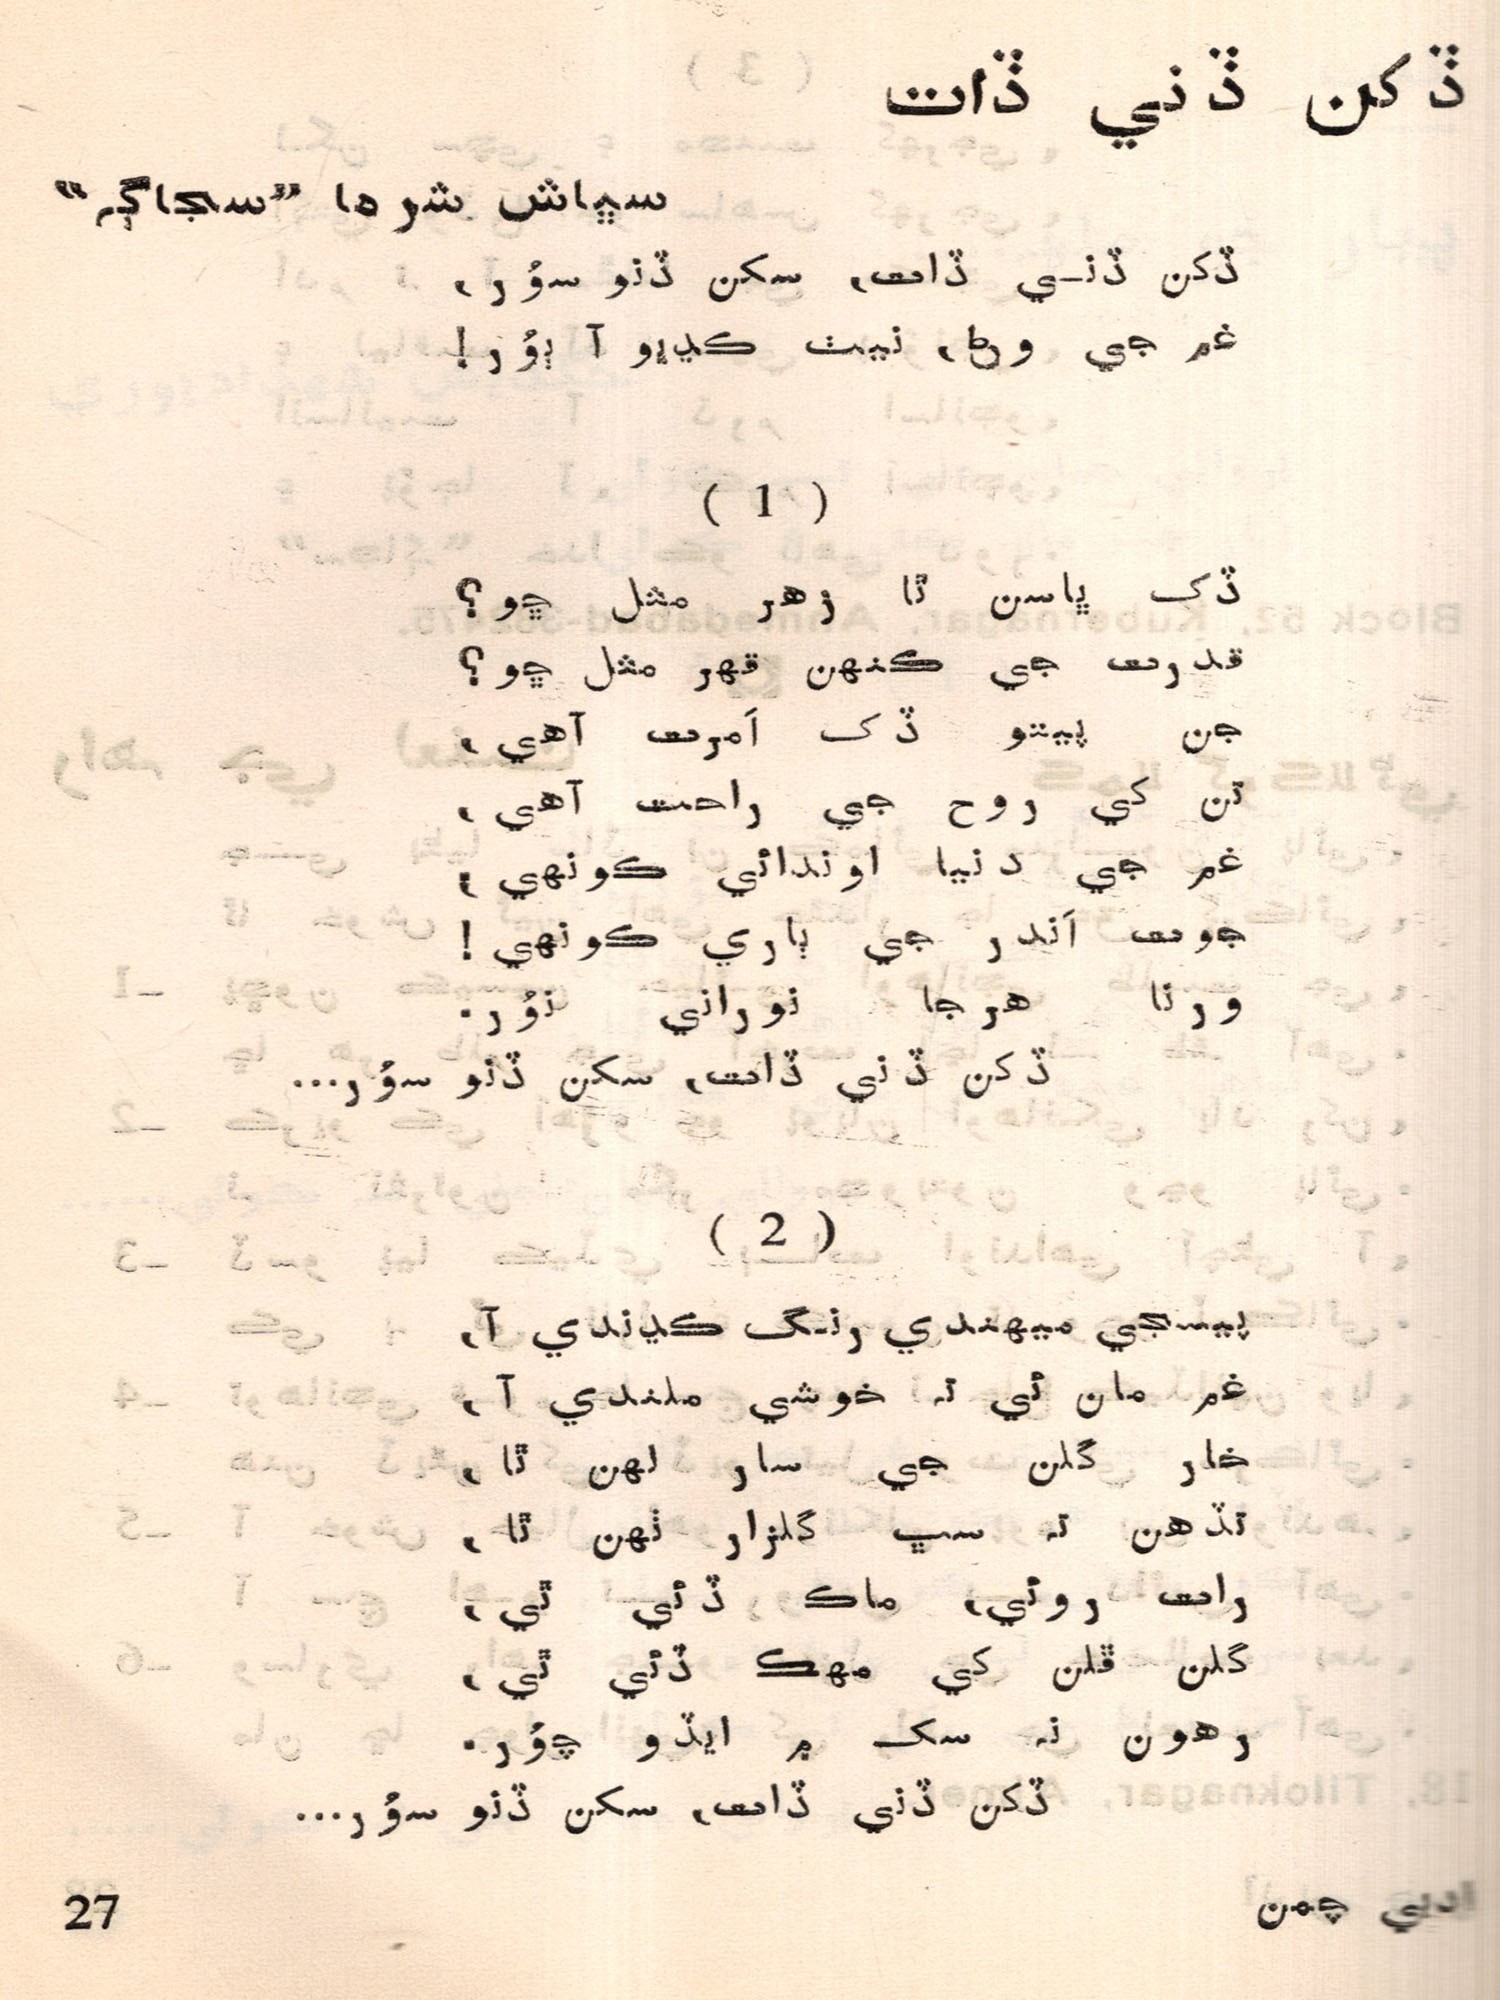 ڏکن ڏني ڏات
سڀاش شرما ”سجاڳ“
ڏکن ڏني ڏات، سکن ڏنو سوُر،
غم جي وڻ، نيٺ ڪڍيو آ ٻوُر!
( 1 )
ڏک ڀاسن ٿا زهر مثل ڇو؟
قدرت جي ڪنهن قهر مثل ڇو؟
جن پيتو ڏک اَمرت آهي،
تن کي روح جي راحت آهي،
غم جي دنيا اوندائي ڪونهي،
جوت اَندر جي ٻاري ڪونهي!
ورنا هرجا نوراني نوُر.
ڏکن ڏني ڏات، سکن ڏنو سوُر...
( 2 )
پيسجي ميهندي رنگ ڪڍندي آ،
غم مان ئي ته خوشي ملندي آ،
خار گلن جي سار لهن ٿا،
تڏهن ته سڀ گلزار ٺهن ٿا،
رات روئي، ماڪ ڏئي ٿي،
گلن ڦلن کي مهڪ ڏئي ٿي،
رهون نه سک ۾ ايڏو چوُر.
ڏکن ڏني ڏات، سکن ڏنو سوُر...
ادبي چمن
27